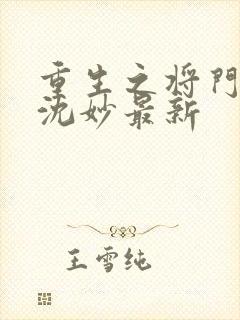 重生之将门
沈妙最新
王雪纯